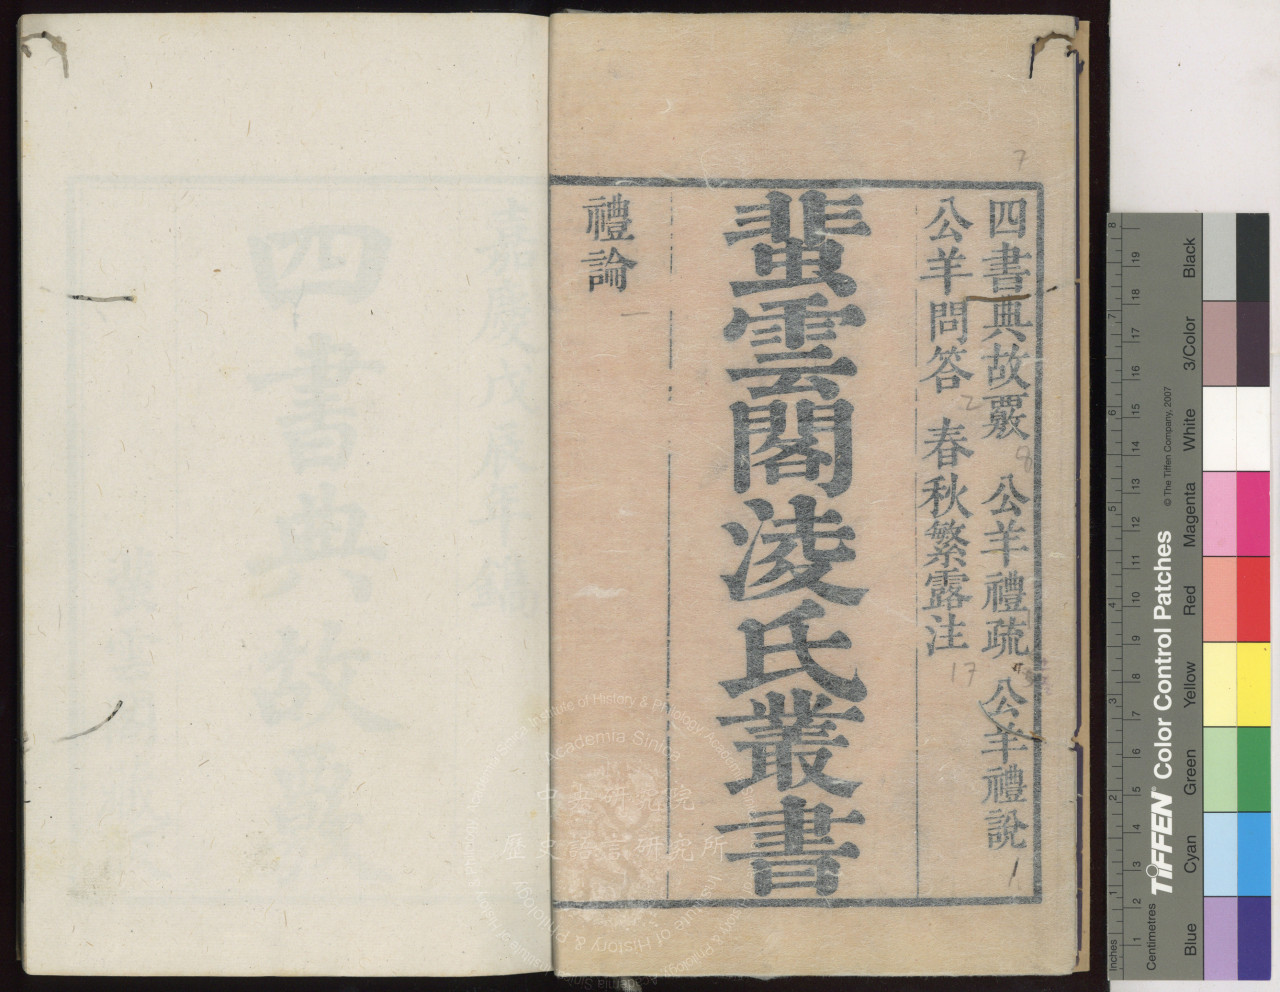 四書典故覈 公羊禮疏 公羊禮說
公羊問答 春秋繁露注
蜚雲閣淩氏叢書
禮論
7
8
11
1
2
17
一
嘉慶戊辰年鐫
四書典故覈
Institute of History & Philology, Academia Sinica
中央研究院
歷史語言研究所
Inches
Centimetres
TIFFEN® Color Control Patches
© The Tiffen Company, 2007
Blue
Cyan
Green
Yellow
Red
Magenta
White
3/Color
Black
1 2 3 4 5 6 7 8
1 2 3 4 5 6 7 8 9 10 11 12 13 14 15 16 17 18 19